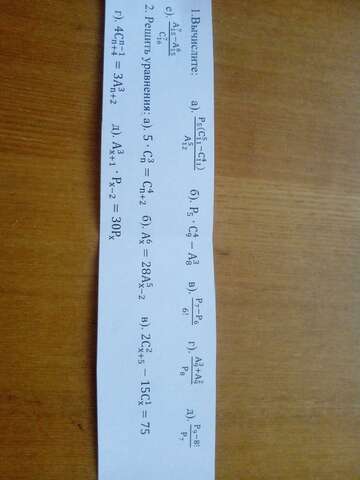 1.Вычислите: а). \frac{P_5(C_{11}^5-C_{11}^4)}{A_{12}^5} б). P_5 · C_9^4 − A_8^3 в). \frac{P_7-P_6}{6!} г). \frac{A_9^3+A_9^2}{P_8} д). \frac{P_9-8!}{P_7}
е). \frac{A_{15}^7-A_{15}^6}{C_{16}^7}
2. Решить уравнения: а). 5 · C_n^3 = C_{n+2}^4 б). A_x^6 = 28A_{x-2}^5 в). 2C_{x+5}^2 − 15C_x^1 = 75
г). 4C_{n+4}^{n-1} = 3A_{n+2}^3 д). A_{x+1}^3 · P_{x-2} = 30P_x